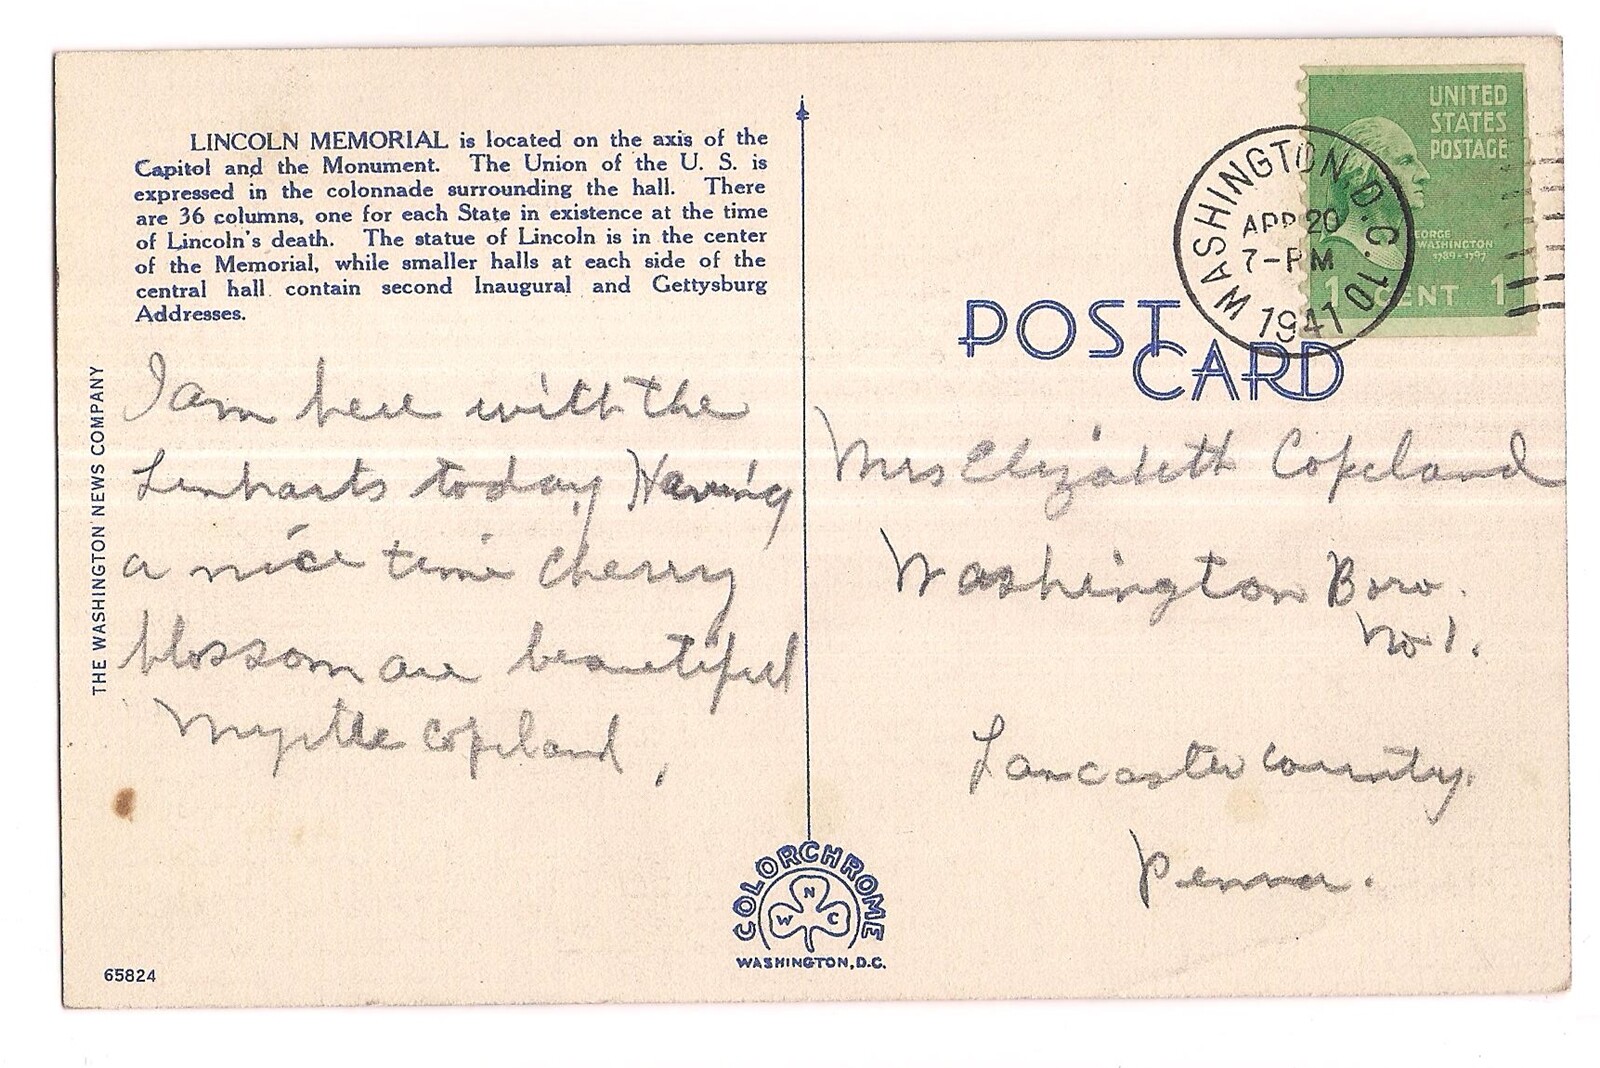 LINCOLN MEMORIAL is located on the axis of the
Capitol and the Monument. The Union of the U. S. is
expressed in the colonnade surrounding the hall. There
are 36 columns, one for each State in existence at the time
of Lincoln's death. The statue of Lincoln is in the center
of the Memorial, while smaller halls at each side of the
central hall contain second Inaugural and Gettysburg
Addresses.
I am here with the
Lenharts today Having
a nice time Cherry
blossom are beautiful
Myrtle Copeland,
THE WASHINGTON NEWS COMPANY
65824
COLORCHROME
N
W C
WASHINGTON, D.C.
POST
CARD
UNITED
STATES
POSTAGE
GEORGE
WASHINGTON
1789-1797
1 CENT 1
WASHINGTON, D.C. 10
APR 20
7-PM
1941
Mrs Elizabeth Copeland
Washington Boro.
No 1.
Lancaster County.
Penna.